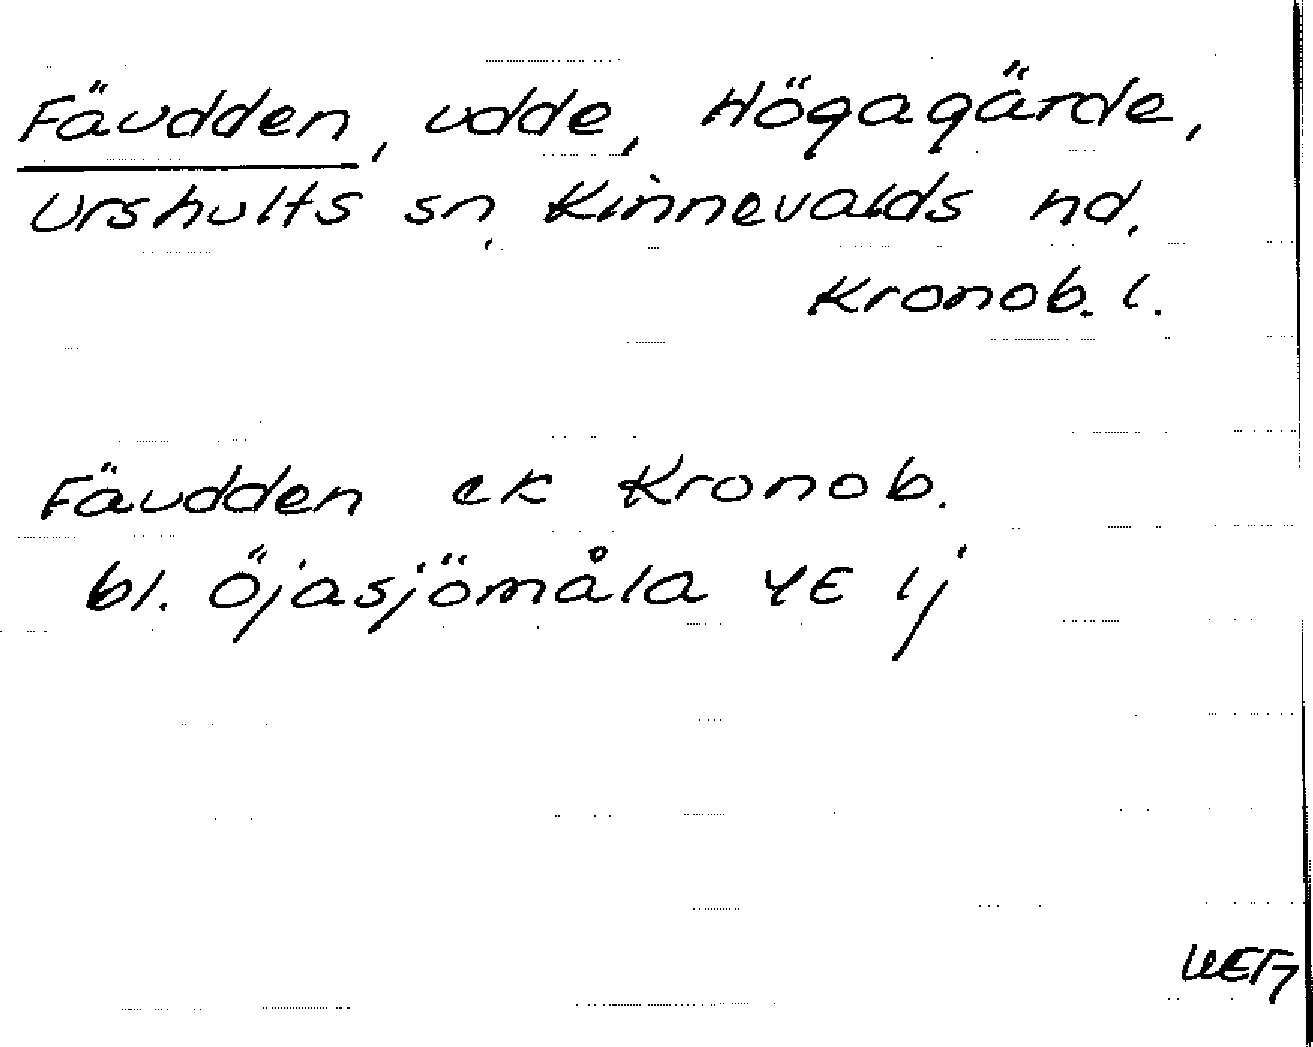 Fäudden, udde, Högagärde,
Urshults sn, Kinnevalds hd,
Kronob. l.
Fäudden ek Kronob.
bl. Öjasjömåla 4E lj